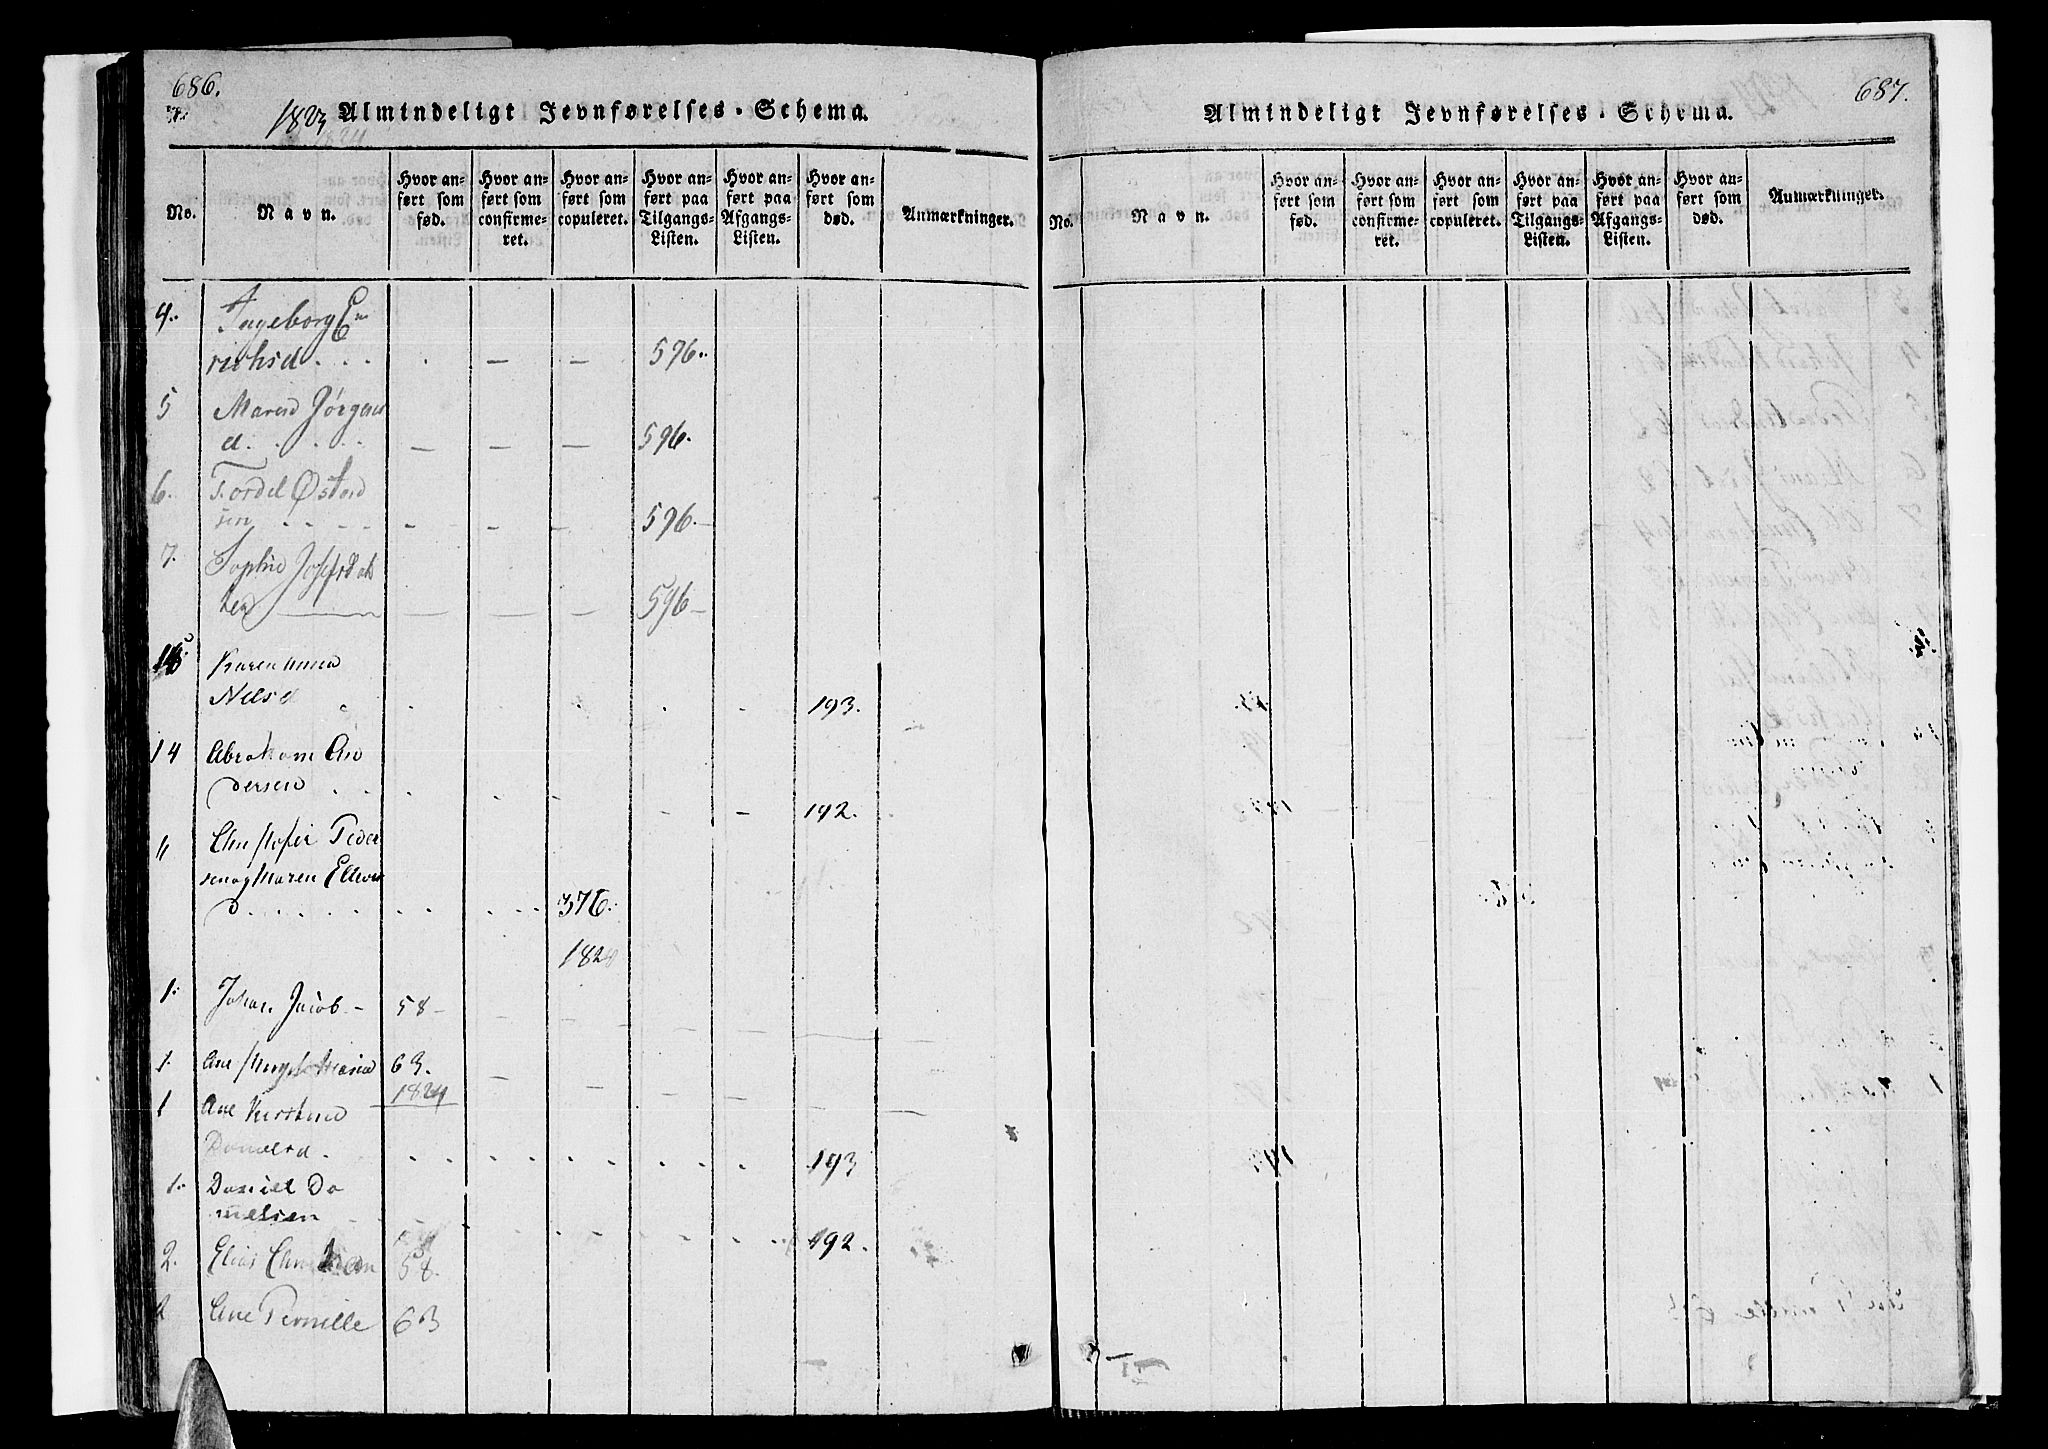 686.
1823 Almindeligt Jevnførelses-Schema.
1824
No.
Navn.
Hvor an-
ført som
fød.
Hvor an-
ført som
confirme-
ret.
Hvor an-
ført som
copuleret.
Hvor an-
ført paa
Tilgangs-
Listen.
Hvor an-
ført paa
Afgangs-
Listen.
Hvor an-
ført som
død.
Anmærkninger.
4. Ingeborg E
richsd . . . . – – 596.
5 Maren Jørgens
d. . . . . – – – 596.
6. Tordel Østend
sen . . . . – – – 596.
7. Sophie Josefsdat
ter – – – 596
Karen Anna
Nilsd . . . . . . 193.
14 Abraham An
dersen . . . . . – – 192.
Christofer Peder
sen og Maren Ellevs
d. . . . . . . . . . 376.
1824
1. Johan Jacob – 58 –
1. Ane Maria 63.
1824
1 Ane Kirstine
Danielsd . . . . . . . . . 193
1. Daniel Da
nielsen . . . . . 192.
2. Elias Christian 58.
2 Ane Pernille 63
687.
Almindeligt Jevnførelses-Schema.
No.
Navn.
Hvor an-
ført som
fød.
Hvor an-
ført som
confirme-
ret.
Hvor an-
ført som
copuleret.
Hvor an-
ført paa
Tilgangs-
Listen.
Hvor an-
ført paa
Afgangs-
Listen.
Hvor an-
ført som
død.
Anmærkninger.